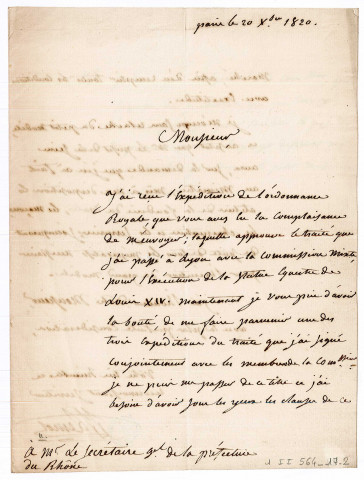 paris le 20 Xbre 1820.
Monsieur
J'ai reçu l'Expédition de L'ordonnance
Royale que vous avez eu la complaisance
de m'envoyer, laquelle approuve le traité que
j'ai passé a Lyon avec la commission mixte
pour l'Exécution de la Statue Equestre de
Louis XIV. maintenant je vous prie d'avoir
la bonté de me faire parvenir une des
trois expéditions du traité que j'ai signé
conjointement avec les membres de la Comssion
je ne puis me passer de ce titre et j'ai
besoin d'avoir sous les yeux les clauses de ce
a Mr. Le Secrétaire gal. de la préfecture
du Rhône
1 II 564_17.2